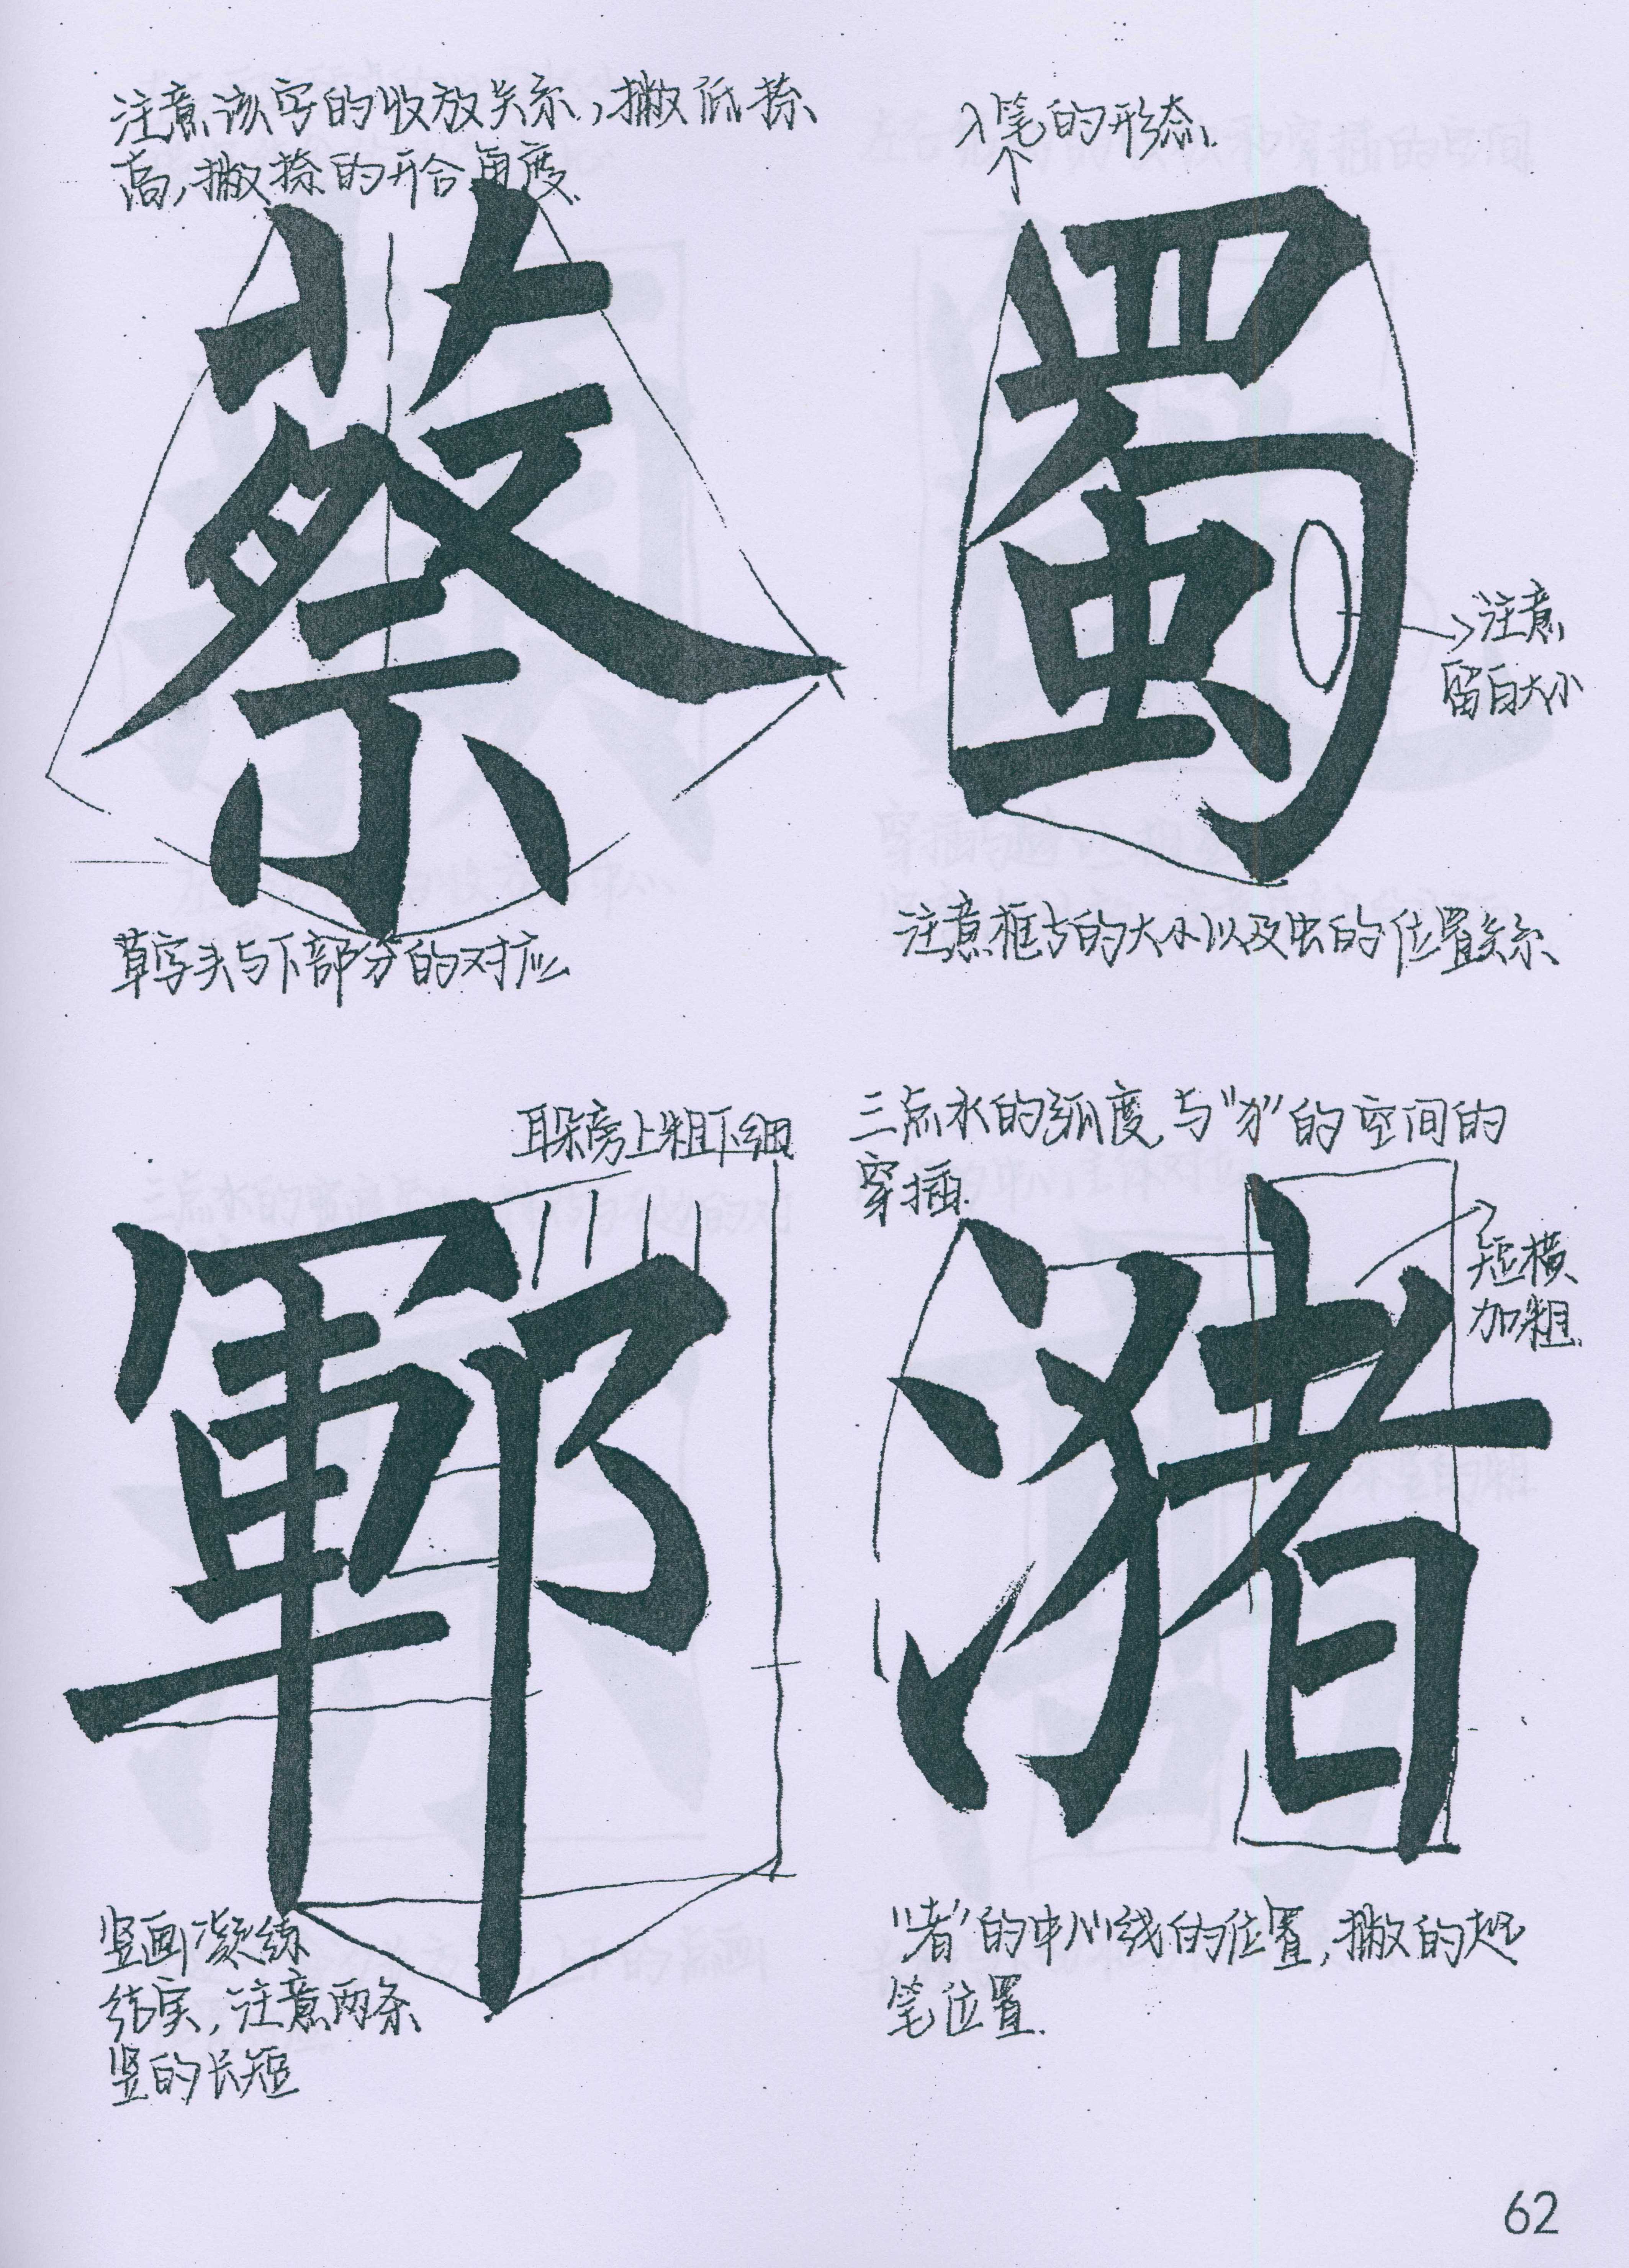 注意该字的收放关系，撇低捺
高，撇捺的开合角度
蔡
草字头与下部分的对应
入笔的形态
蜀
注意
留白大小
注意框与的大小以及虫的位置关系
耳朵旁上粗下细
鄆
竖画凝练
结实，注意两条
竖的长短
三点水的弧度与“犭”的空间的
穿插
潴
短横
加粗
“者”的中心线的位置，撇的起
笔位置
62